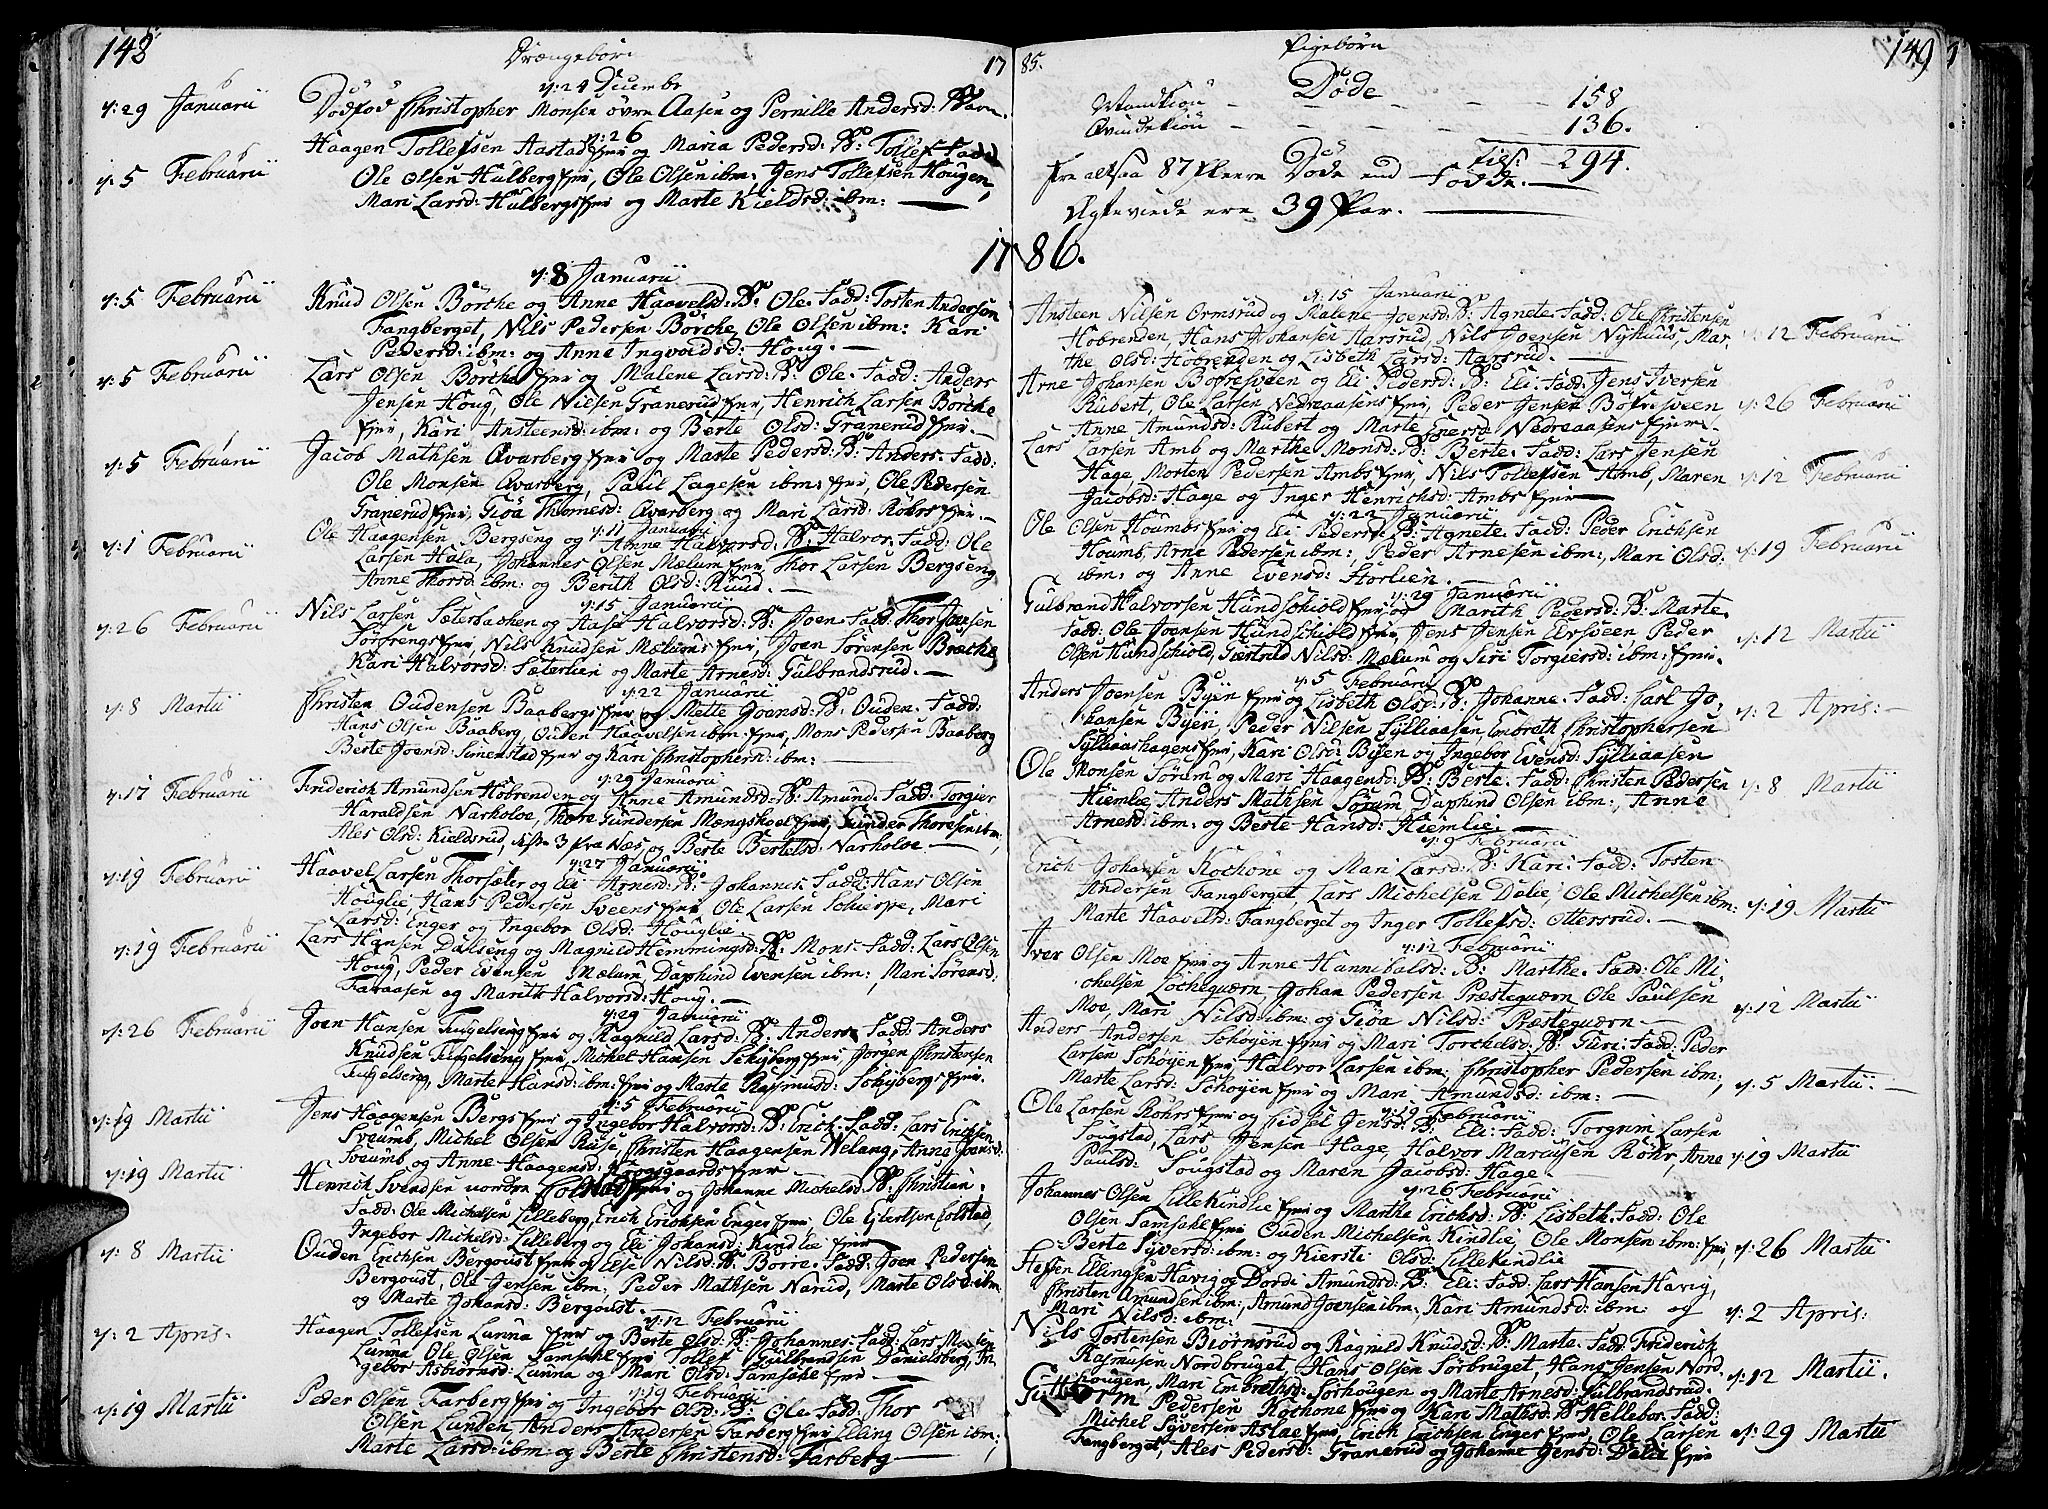 148
Drængebørn
17
d: 24 Decembr
d: 29 Januarii
Christopher Monsen øvre Aasen og Pernille Andersd: Barn
d: 26
Haagen Tollefsen Aastad og Maria Pedersd: B: Tollef. Fadd
d: 5 Februarii
Ole Olsen Hulberg ejer, Ole Olsen ibm: Jens Tollefsen Hougen,
Mari Larsd: Hulbergs ejer og Marte Kieldsd: ibm:
17
d: 8 Januarii
d: 5 Februarii
Knud Olsen Börche og Anne Haavelsd: B: Ole. Fadd: Tosten Andersen
Fangberget, Nils Pedersen Börche, Ole Olsen ibm: Kari
Pedersd: ibm: og Anne Ingvoldsd: Houg.
d: 5 Februarii
Lars Olsen Börche ejer og Malene Larsd: B: Ole. Fadd: Anders
Jensen Houg, Ole Nilsen Granerud ejer, Henrich Larsen Börche
ejer, Kari Ansteensd: ibm: og Berte Olsd: Granerud ejer.
d: 5 Februarii
Jacob Mathsen Qvarberg ejer og Marte Pedersd: B: Anders. Fadd:
Ole Monsen Qvarberg, Paul Lagesen ibm: ejer, Ole Pedersen
Granerud ejer, Giöa Thomesd: Qvarberg og Mari Larsd: Röhrs ejer.
d: 11 Januarii
d: 1 Februarii
Ole Haagensen Bergseng og Anne Halvorsd: B: Halvor. Fadd: Ole
Larsen Hala, Johannes Olsen Mælum ejer, Thor Larsen Bergseng
Anne Thorsd: ibm: og Berith Olsd: Ruud.
d: 15 Januarii
d: 26 Februarii
Nils Larsen Sæterbachen og Aase Halvorsd: B: Joen. Fadd: Thor Joensen
Sörfrengs ejer, Nils Knudsen Mælums ejer, Joen Sörensen Bræche
Kari Halvorsd: Sæterlien og Marte Arnesd: Gulbrandsrud.
d: 22 Januarii
d: 8 Martii
Christen Oudensen Baabergs ejer og Mette Joensd: B: Ouden. Fadd:
Hans Olsen Baaberg, Ouden Haavelsen ibm: ejer, Mons Pedersen Baaberg
Berte Joensd: Simenstad ejer og Kari Christophersd: ibm:
d: 29 Januarii
d: 17 Februarii
Friderich Amundsen Höbrenden og Anne Amundsd: B: Amund. Fadd: Torgier
Haraldsen Narholoe, Thore Gundersen Mængskoel ejer, Gunder Thoresen ibm:
Ales Olsd: Kieldsrud, 3 fra Næs og Berte Bertelsd: Narholoe
d: 27 Januarii
d: 19 Februarii
Haavel Larsen Thorsæter og Eli Arnesd: B: Johannes. Fadd: Hans Olsen
Houglie, Hans Pedersen Sveens ejer, Ole Larsen Schierpe, Mari
Larsd: Enger og Ingebor Olsd: Houglie.
d: 19 Februarii
Lars Hansen Dalseng og Magnild Hemmingsd: B: Mons. Fadd: Lars Olsen
Houg, Peder Evensen Mælum, Daphind Evensen ibm: Mari Sörensd:
Faraasen og Marith Halvorsd: Houg.
d: 29 Januarii
d: 26 Februarii
Joen Hansen Tingelseng ejer og Ragnild Larsd: B: Anders. Fadd: Anders
Knudsen Tingelseng ejer, Michel Hansen Schyberg ejer, Jörgen Christensen
Tingelseng, Marte Hansd: ibm: ejer og Marte Rasmusd: Schybergs ejer.
d: 5 Februarii
d: 19 Martii
Jens Haagensen Bergs ejer og Ingebor Halvorsd: B: Erich. Fadd: Lars Erichsen
Sveumb, Michel Olsen Ruse, Christen Haagensen Welang, Anna Joensd:
Sveumb og Anne Haagensd: Krogsgaards ejer
d: 19 Martii
Henrich Svendsen nordre Colstad ejer og Johanne Michelsd: B: Christian.
Fadd: Ole Michelsen Lilleberg, Erich Erichsen Enger ejer, Ole Ejlertsen Colstad,
Ingebor Michelsd: Lilleberg og Eli Johansd: Kindlie ejer
d: 8 Martii
Ouden Erichsen Bergoust ejer og Else Nilsd: B: Borre. Fadd: Joen Pedersen
Bergoust, Ole Jensen ibm: Peder Mathsen Narud, Marte Olsd: ibm:
og Marte Johansd: Bergoust.
d: 12 Februarii
d: 2 Apris:
Haagen Tollefsen Lunna ejer og Berte Olsd: B: Johannes. Fadd: Lars Monsen
Lunna, Ole Olsen Samsahl ejer, Tollef Gulbrandsen Danielsberg, In-
gebor Asbiörnsd: Lunna og Mari Olsd: Samsahl ejer
d: 19 Februarii
d: 19 Martii
Peder Olsen Farberg ejer og Ingebor Olsd: B: Ole. Fadd: Thor
Olsen Lunden, Anders Andersen Farberg ejer, Elling Olsen ibm:
Marte Larsd: ibm: og Berte Christensd: Farberg
149
Pigebørn
85.
Døde
Mandkiön - - - - 158
Qvindekiön - - - - 136.
Tils: 294.
Ere altsaa 87 fleere Døde end Födde.
Ægteviede ere 39 Par.
86.
d: 15 Januarii
Ansteen Nilsen Ormsrud og Malene Joensd: B: Agnete. Fadd: Ole Christensen
Hobrenden, Hans Johansen Aarsrud, Nils Joensen Nyhuus, Mar-
the Olsd: Hobrenden og Lisbeth Larsd: Aarsrud.
d: 12 Februarii
Arne Johansen Böfresveen og Eli Pedersd: B: Eli. Fadd: Jens Iversen
Rubert, Ole Larsen Nedreaasens ejer, Peder Jensen Böfresveen
Anne Amundsd: Rubert og Marte Enersd: Nedreaasens ejer.
d: 26 Februarii
Lars Larsen Amb og Marthe Monsd: B: Berte. Fadd: Lars Jensen
Hage, Morten Pedersen Ambs ejer, Nils Tollefsen Amb, Maren
Jacobsd: Hage og Inger Henrichsd: Ambs ejer
d: 12 Februarii
d: 22 Januarii
Ole Olsen Houmbs ejer og Eli Pedersd: B: Agnete. Fadd: Peder Erichsen
Houmb, Arne Pedersen ibm: Peder Arnesen ibm: Mari Olsd:
ibm: og Anne Evensd: Storlien.
d: 19 Februarii
d: 29 Januarii
Gulbrand Halvorsen Hundschiold ejer og Marith Pedersd: B: Marte.
Fadd: Ole Joensen Hundschiold ejer, Jens Jensen Eversveen, Peder
Olsen Hundschiold, Giertrud Nilsd: Mælum og Siri Torgiersd: ibm: ejer.
d: 12 Martii
d: 5 Februarii
Anders Joensen Byen ejer og Lisbeth Olsd: B: Johanne. Fadd: Carl Jo-
hansen Byen, Peder Nilsen Sylliaasen, Embreth Christophersen
Sylliaashagens ejer, Kari Olsd: Byen og Ingebor Evensd: Sylliaasen
d: 2 Apris:
Ole Monsen Sörum og Mari Haagensd: B: Berte. Fadd: Christen Pedersen
Hiemlie, Anders Mathsen Sörum, Daphind Olsen ibm: Anne
Arnesd: ibm: og Berte Hansd: Hiemlie.
d: 8 Martii
d: 9 Februarii
Erich Johansen Kochone og Mari Larsd: B: Kari. Fadd: Tosten
Andersen Fangberget, Lars Michelsen Dalie, Ole Michelsen ibm:
Marte Haavelsd: Fangberget og Inger Tollefsd: Ottersrud.
d: 19 Martii
d: 12 Februarii
Iver Olsen Moe ejer og Anne Hannibalsd: B: Marthe. Fadd: Ole Mi-
chelsen Lochequærn, Johan Pedersen Præstequærn, Ole Paulsen
Moe, Mari Nilsd: ibm: og Giöa Nilsd: Præstequærn
d: 12 Martii
Anders Andersen Schöyen ejer og Mari Torchelsd: B: Guri. Fadd: Peder
Larsen Schöyen ejer, Halvor Larsen ibm: Christopher Pedersen ibm:
Marte Larsd: Schöyen ejer og Mari Amundsd: ibm:
d: 5 Martii.
d: 19 Februarii
Ole Larsen Röhrs ejer og Sidsel Jensd: B: Eli. Fadd: Torgrim Larsen
Sougstad, Lars Jensen Hage, Halvor Marcusen Röhr, Anne
Paulsd: Sougstad og Maren Jacobsd: Hage
d: 19 Martii
d: 26 Februarii
Johannes Olsen Lillekindlie ejer og Marthe Erichsd: B: Lisbeth. Fadd: Ole
Olsen Samsahl ejer, Ouden Michelsen Kindlie, Ole Monsen ibm: ejer,
Berte Syversd: ibm: og Kiersti Olsd: Lillekindlie
d: 26 Martii
Steffen Ellingsen Havig og Dordi Amundsd: B: Eli. Fadd: Lars Hansen Havig,
Christen Amundsen ibm: Amund Joensen ibm: Kari Amundsd: ibm: og
Mari Nilsd: ibm:
d: 2 Apris:
Nils Tostensen Biörnsrud og Ragnild Knudsd: B: Marta. Fadd: Friderich
Rasmusen Nordbruget, Hans Olsen Sörbruget, Hans Jensen Nord-
hougen, Mari Embrethsd: Sörhougen og Marte Arnesd: Gulbrandsrud.
d: 12 Martii.
Guttorm Pedersen Kochone ejer og Kari Mathsd: B: Hellebor. Fadd:
Michel Syversen Astae ejer, Erich Erichsen Enger ejer, Ole Larsen
Fangberget, Ales Pedersd: Granerud og Johanne Jensd: Dalie ejer
d: 29 Martii